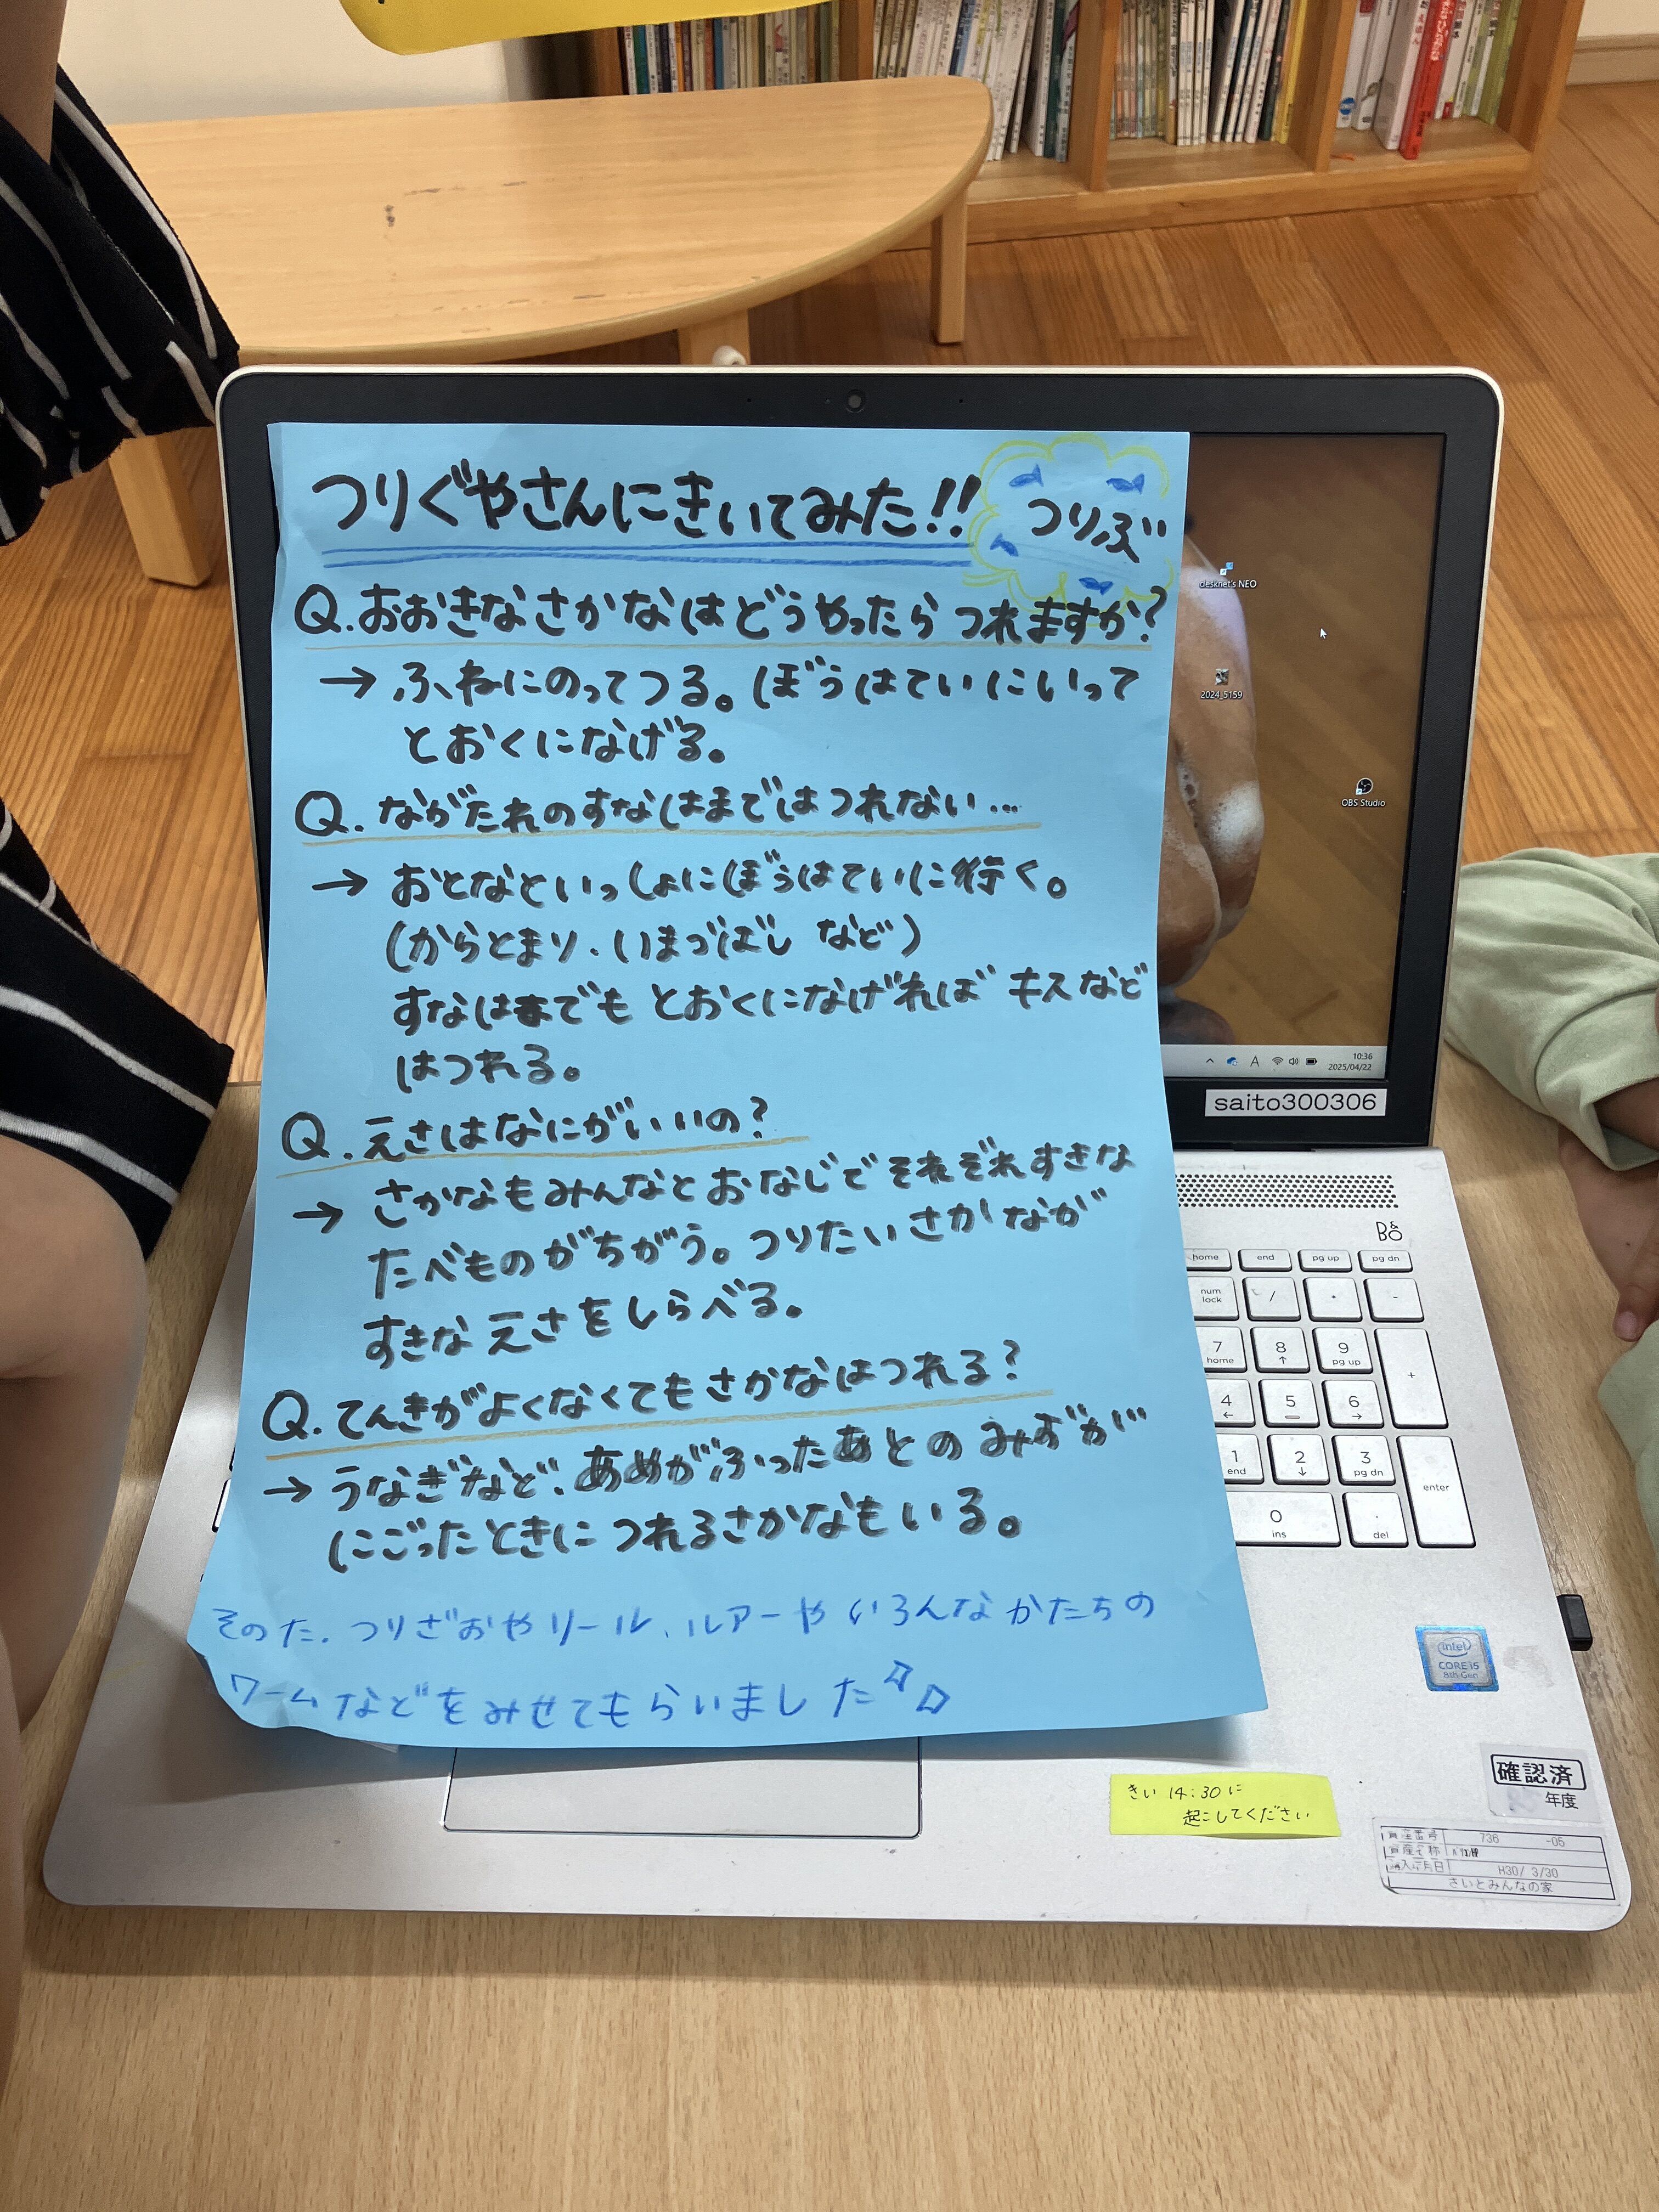 つりぐやさんにきいてみた!!
つりぶ
Q.おおきなさかなはどうやったらつれますか?
→ ふねにのってつる。ぼうはていにいって
とおくになげる。
Q. ながたれのすなはまではつれない…
→ おとなといっしょにぼうはていに行く。
(からとまり.いまづばし など)
すなはまでも とおくになげれば キスなど
はつれる。
Q.えさはなにがいいの?
→ さかなもみんなとおなじで それぞれすきな
たべものがちがう。つりたいさかなが
すきな えさをしらべる。
Q.てんきがよくなくてもさかなはつれる?
→ うなぎなど、あめがふったあとの みずが
にごったときに つれるさかなもいる。
そのた.つりざおやリール、ルアーや いろんなかたちの
ワームなどをみせてもらいました
desknet's NEO
2024_5159
OBS Studio
A
10:36
2025/04/22
saito300306
B&O
home
end
pg up
pg dn
num lock
/
*
-
7 home
8
9 pg up
+
4
5
6
1 end
2
3 pg dn
enter
0 ins
. del
intel
CORE i5
8th Gen
確認済
年度
きい 14:30に
起こしてください
資産番号 736 -05
資産名称
購入年月日 H30/ 3/30
さいとみんなの家